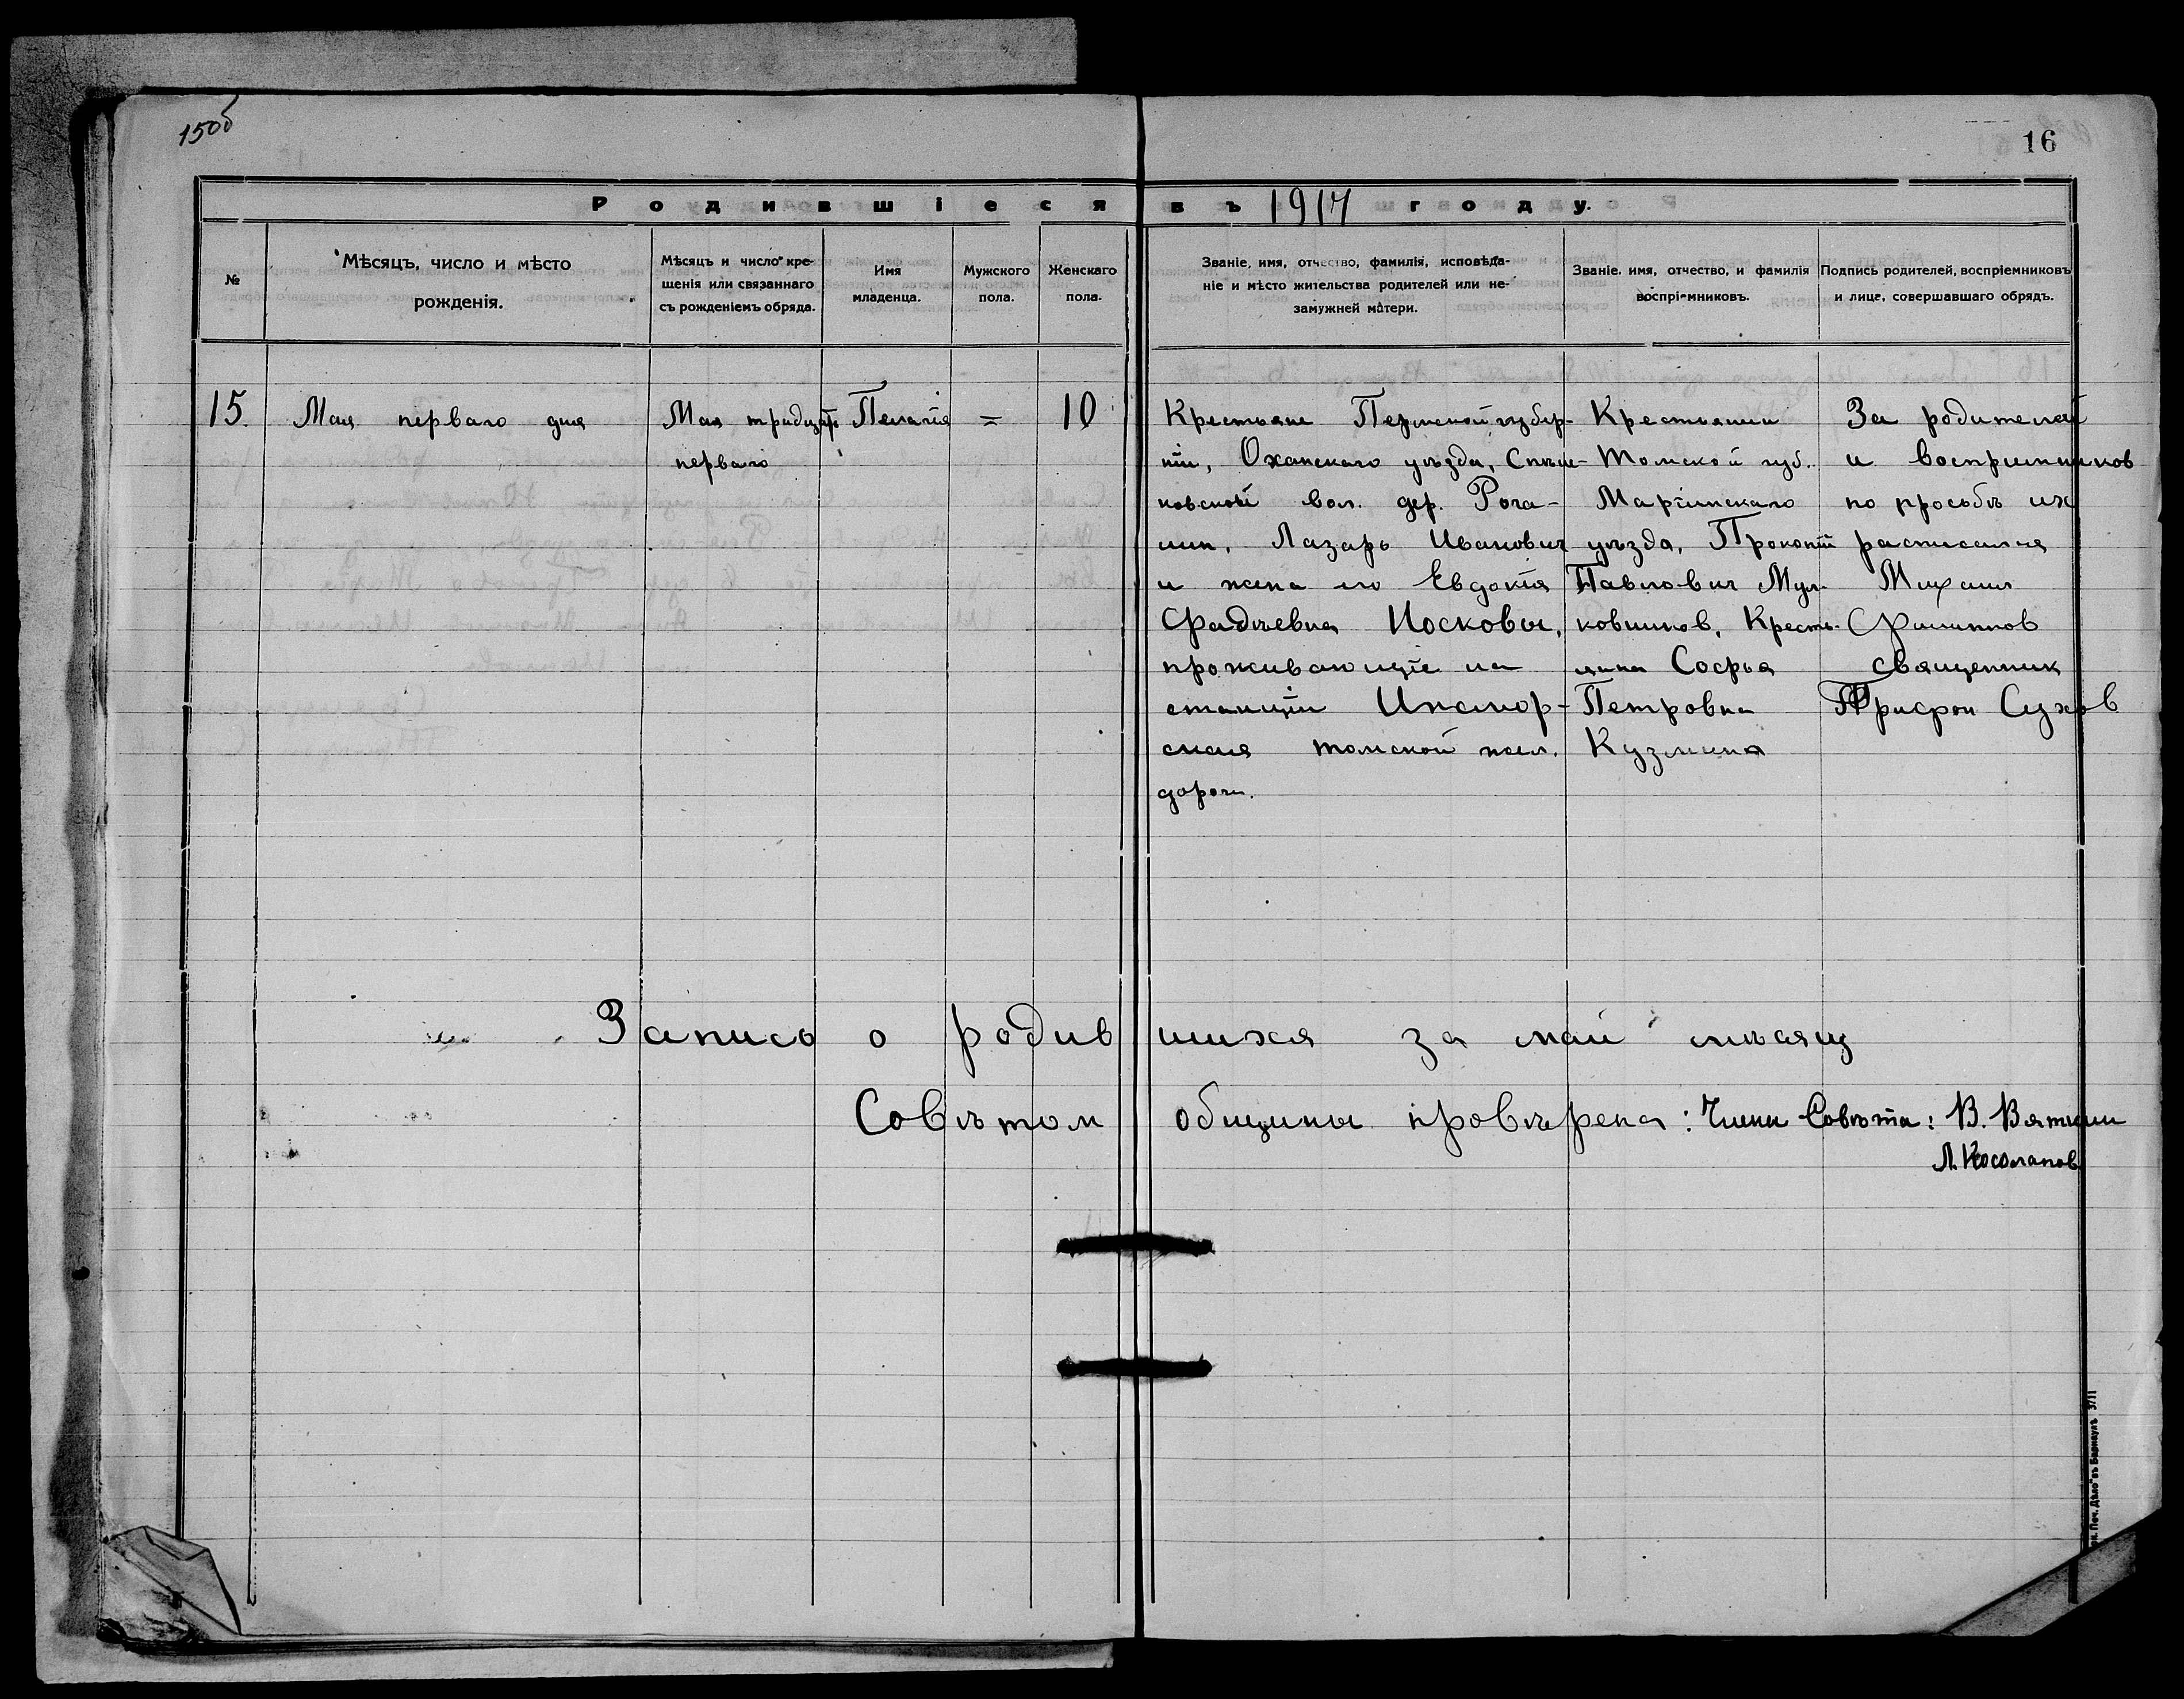 15об
16
Родившіеся въ 1917 году.
№
Мѣсяцъ, число и мѣсто
рожденія.
Мѣсяцъ и число кре-
щенія или связаннаго
съ рожденіемъ обряда.
Имя
младенца.
Мужского
пола.
Женскаго
пола.
Званіе, имя, отчество, фамилія, исповѣда-
ніе и мѣсто жительства родителей или не-
замужней матери.
Званіе, имя, отчество, и фамилія
воспріемниковъ.
Подпись родителей, воспріемниковъ
и лицъ, совершавшаго обрядъ.
15.
Мая перваго дня
Мая тридцать
перваго
Пелагія
=
10
Крестьяне Пермской губер-
ніи, Оханскаго уѣзда,
новской вол. дер. Рога-
Лазарь Иванович
и жена его Евдокія
Фадѣевна Носковы,
проживающіе на
станціи Ижмор-
ская томской жел.
дороги.
Крестьянин
Томской губ.
Маріинскаго
уѣзда, Прокопій
Павлович Мул-
ковников, Кресть-
янка Софья
Петровна
Кузмина
За родителей
и восприемников
по просьбѣ их
расписался
Михаил
Филиппов
священник
Трифон Сухов
Запись о родившихся за май мѣсяц
Совѣтом общины провѣрена: Члены Совѣта: В. Вяткин
Л. Косолапов
Печ. Дѣло въ Барнаулѣ 3711